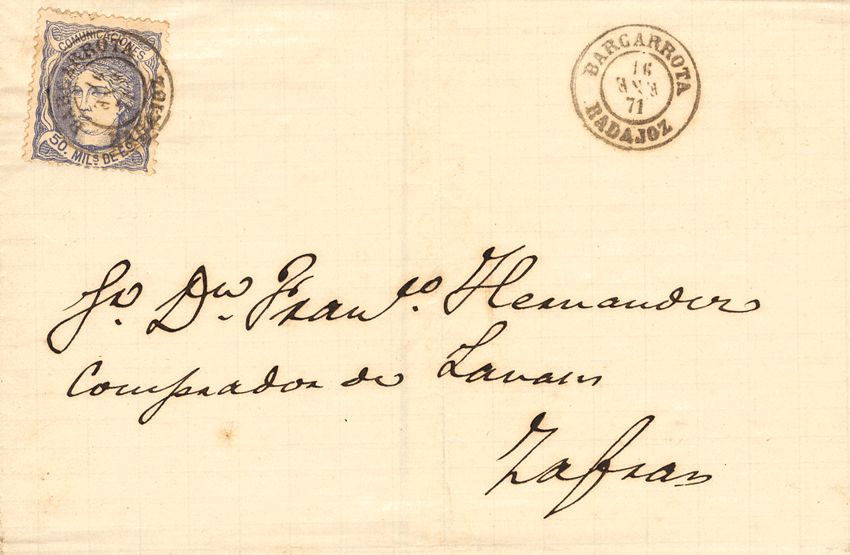 COMUNICACIONES
BARCARROTA
50. MILS DE E
BARCARROTA
16
ENE
71
BADAJOZ
Sr. Dn. Franco. Hernandez
Comprador de Lanas
Zafra